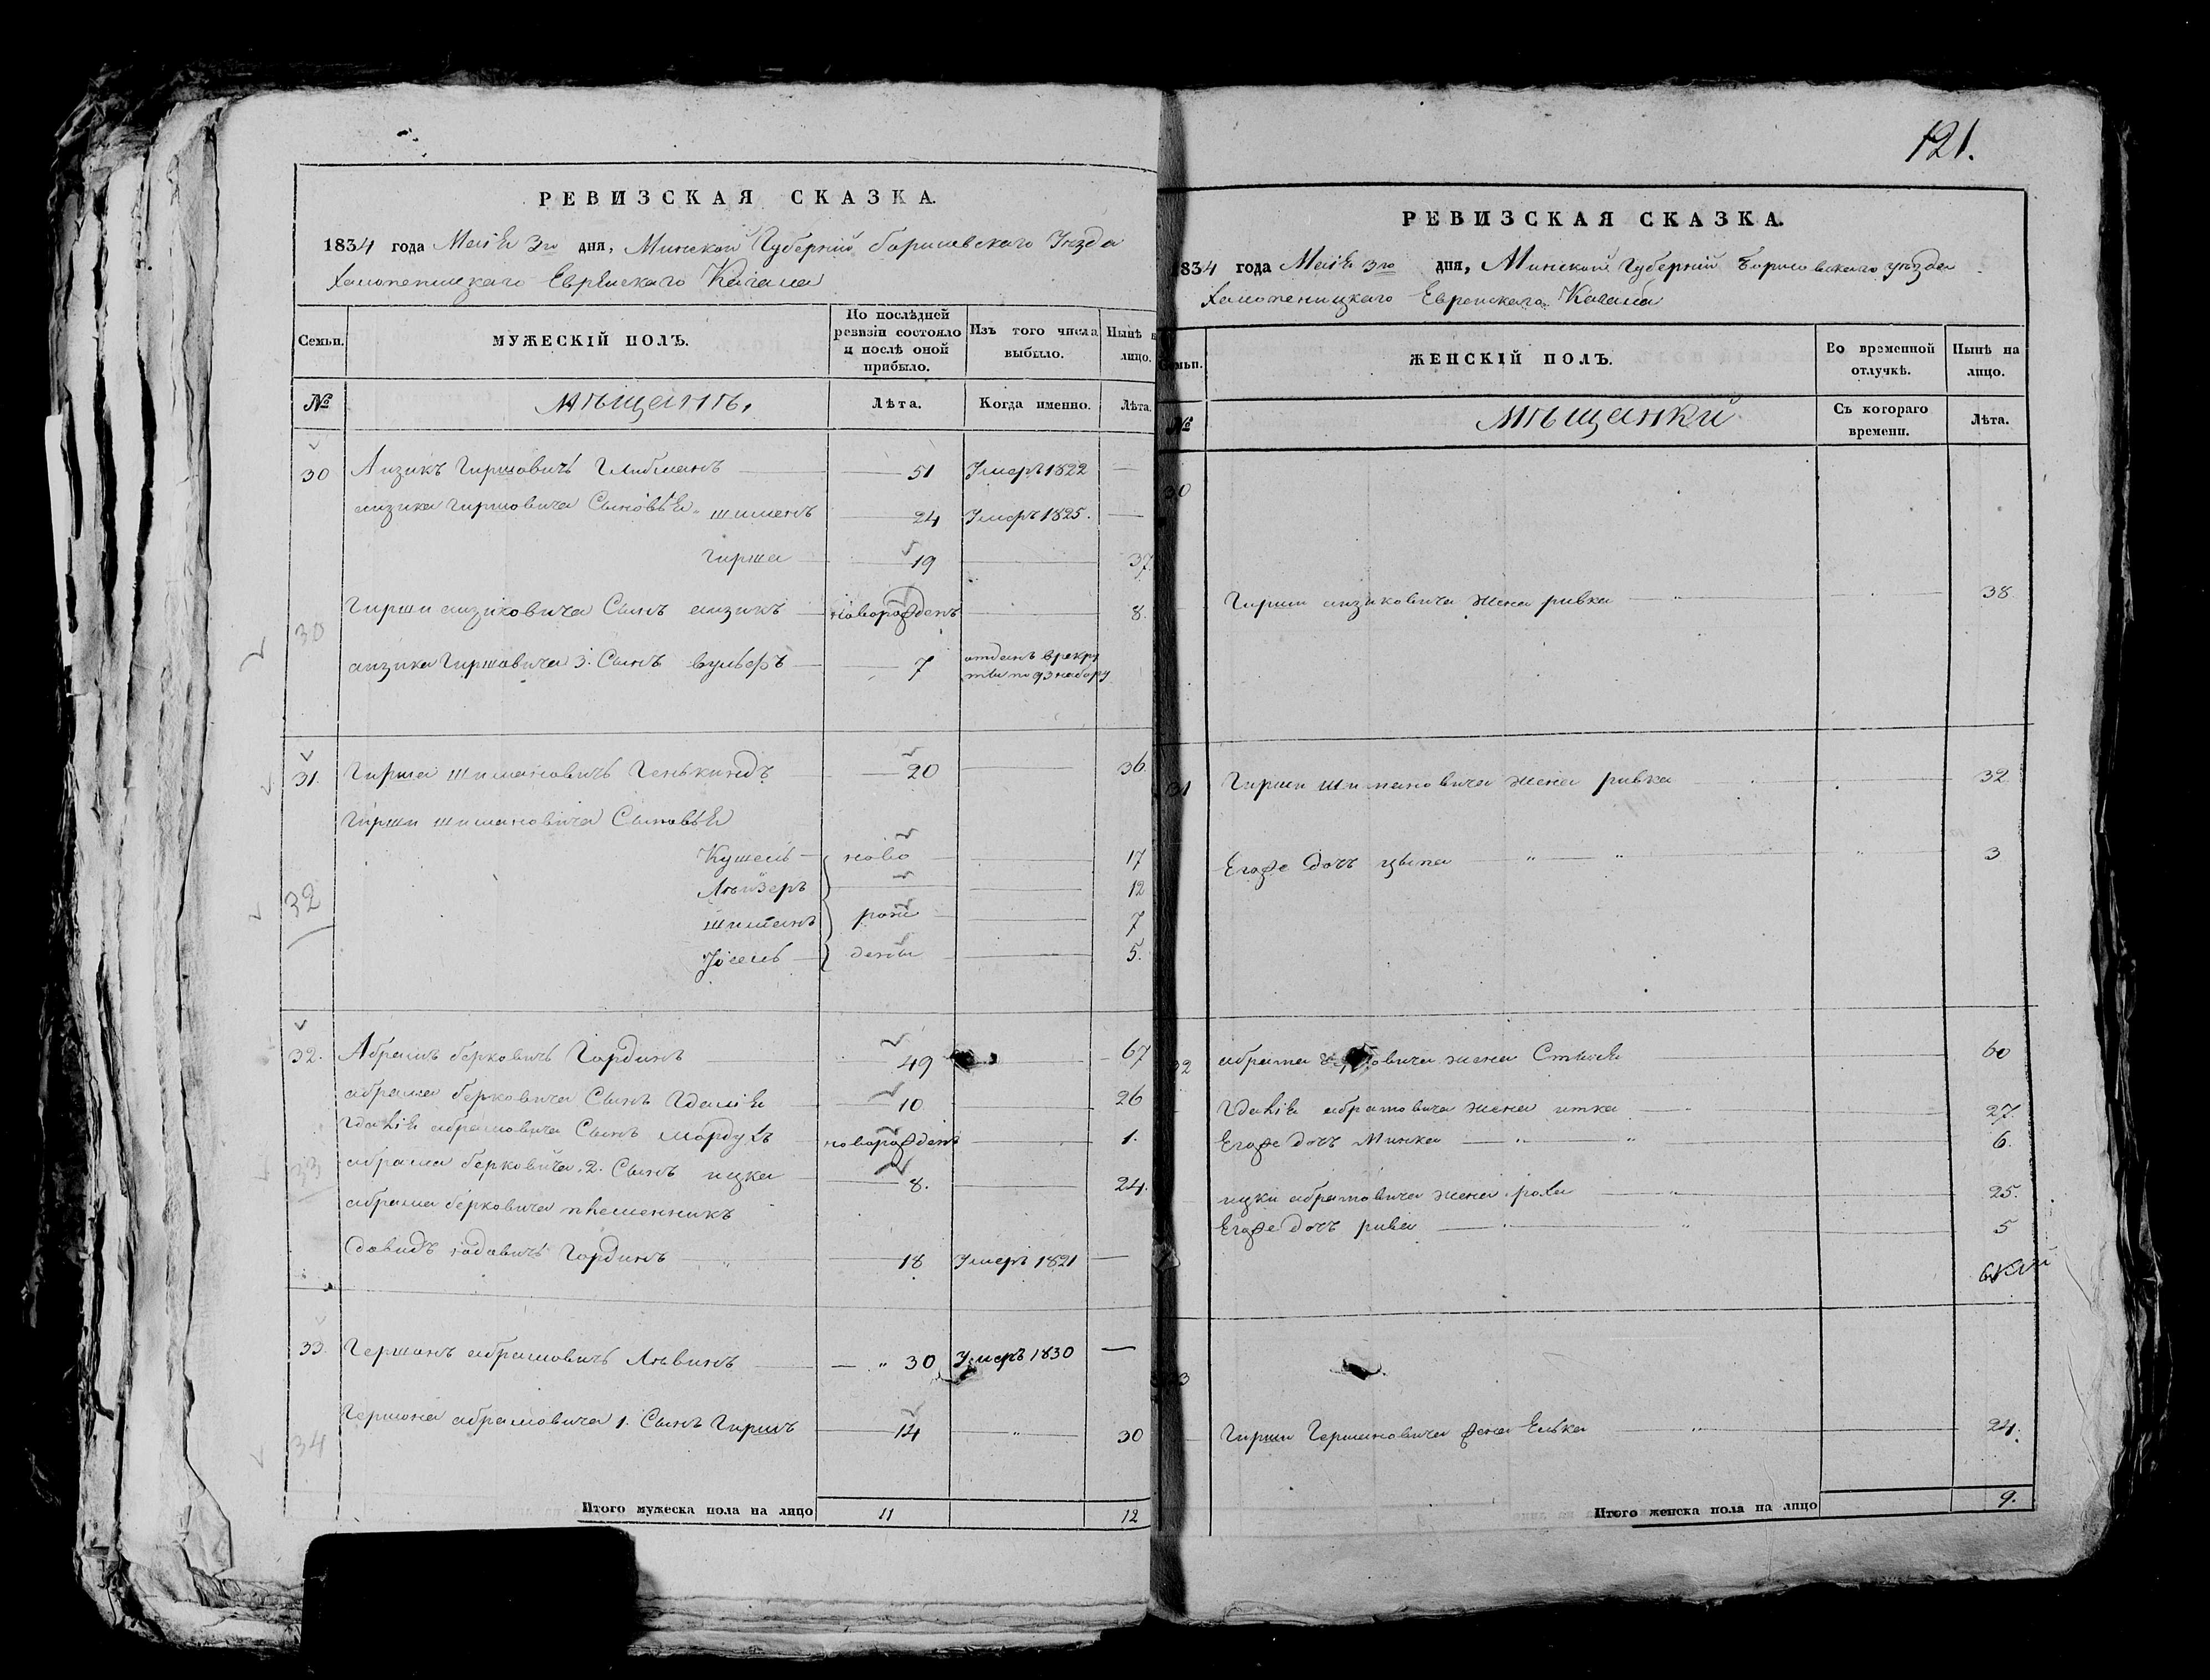 РЕВИЗСКАЯ СКАЗКА.
1834 года Маія 3го дня, Минской Губерній Борисовскаго Уѣзда
Холопеницкаго Еврейскаго Кагала
Семьи.
МУЖЕСКІЙ ПОЛЪ.
По послѣдней ревизіи состояло и послѣ оной прибыло.
Изъ того числа выбыло.
Нынѣ на лицо.
№
Мѣщанъ,
Лѣта.
Когда именно.
Лѣта.
30 Аизикъ Гиршовичъ Глибманъ 51 Умеръ 1822 —
аизика гиршовича Сыновья шименъ 24 Умеръ 1825. —
гирша 19 37
30 гирши аизиковича Сынъ аизикъ новорожденъ 8.
аизика Гиршовича 3. Сынъ вульфъ 7 отданъ в рекру
ты по 93 набору
31. Гирша шимановичъ Генькиндъ 20 36
Гирши шимановича Сыновья
Кушель ново 17
32 Лейзеръ 12
шиманъ рож 7
Іосель дены 5.
32. Абрамъ берковичъ Гординъ 49 67
абрама берковича Сынъ Гдалія 10 26
Гдалія абрамовича Сынъ мордухъ новорожденъ 1.
33 абрама берковича 2. Сынъ ицка 8. 24.
абрама берковича племенникъ
давидъ Гординъ 18 Умеръ 1821 —
33. Гершонъ абрамовичъ Левинъ 30 Умеръ 1830 —
34 Гершона абрамовича 1. Сынъ Гиршъ 14 30
Итого мужеска пола на лицо 11 12
121.
РЕВИЗСКАЯ СКАЗКА.
1834 года Маія 3го дня, Минской Губерній Борисовскаго уѣзда
Холопеницкаго Еврейскаго Кагала
Семьи.
ЖЕНСКІЙ ПОЛЪ.
Во временной отлучкѣ.
Нынѣ на лицо.
№
Мѣщанки
Съ котораго времени.
Лѣта.
30
Гирши аизиковича жена ривка 38
31 Гирши шимановича жена ривка 32
Егоже дочъ цыпа 3
32 абрама берковича жена Стыся 60
Гдалія абрамовича жена итка 27.
Егоже дочъ Минка 6.
ицки абрамовича жена роха 25.
Егоже дочъ рива 5
33
Гирши Гершановича жена Елька 24.
Итого женска пола на лицо 9.